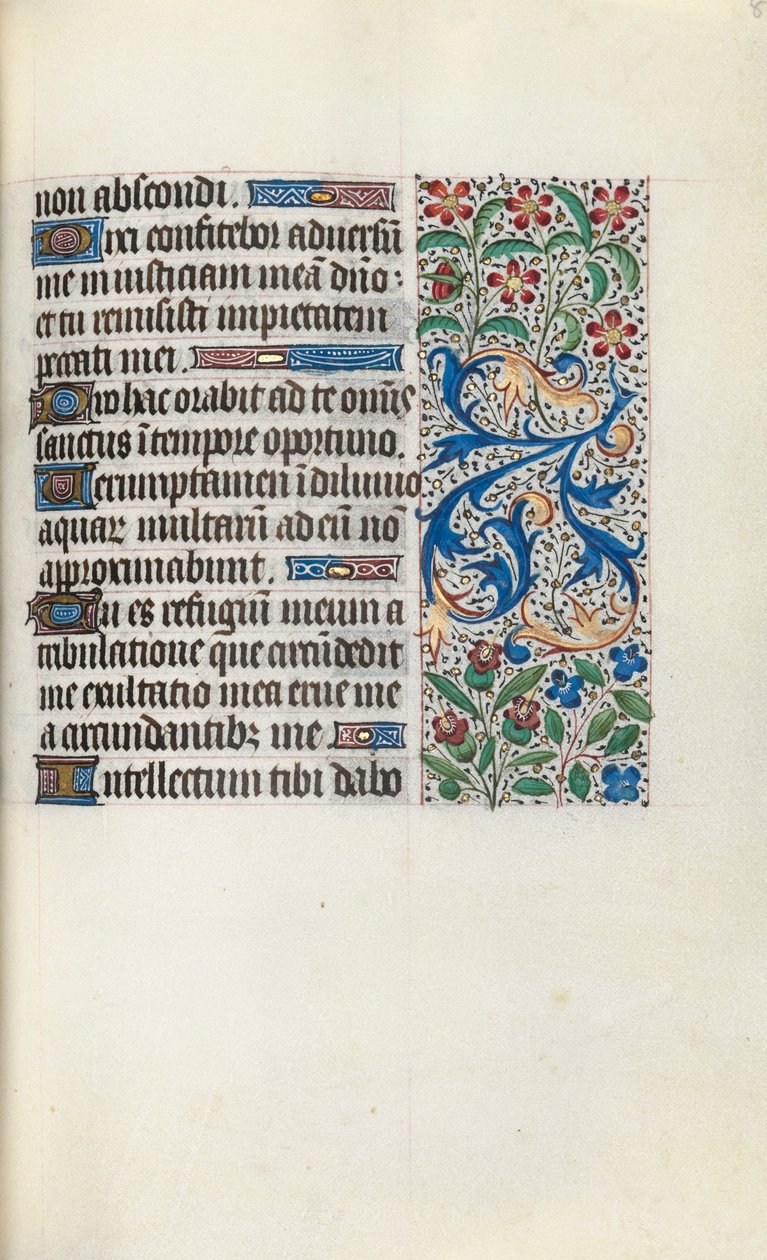 8
non abscondi.
Dixi confitebor adversū
me iniusticiam meā dn̄o:
et tu remisisti impietatem
peccati mei.
Pro hac orabit ad te omīs
sanctus ī tempore oportuno.
Verumptamen ī diluuio
aquaꝝ multarū ad eū nō
approximabunt.
Tu es refugiū meum a
tribulatione que circūdedit
me exultatio mea erue me
a circundantibꝫ me.
Intellectum tibi dabo